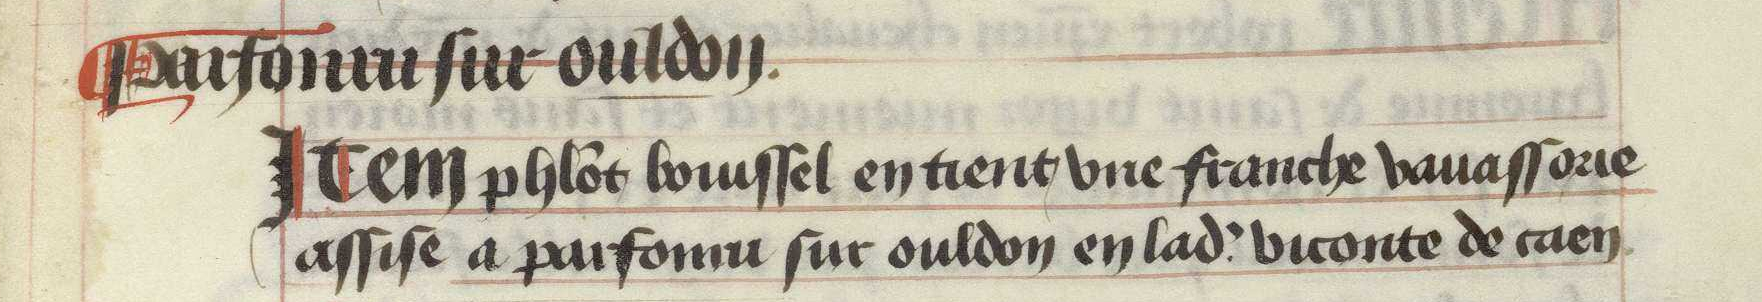 Parfouru sur ouldon.
Item phlõt bouissel en tient vne franche vauassorie
assise a parfouru sur ouldon en lad? viconte de caen.